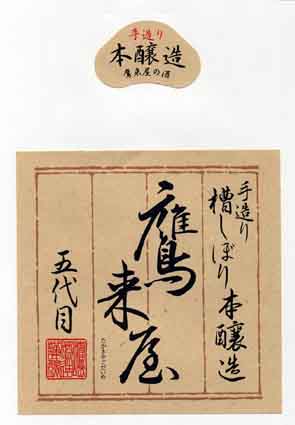 手造り
本醸造
鷹来屋の酒
手造り
槽しぼり本醸造
鷹来屋
たかきやごだいめ
五代目